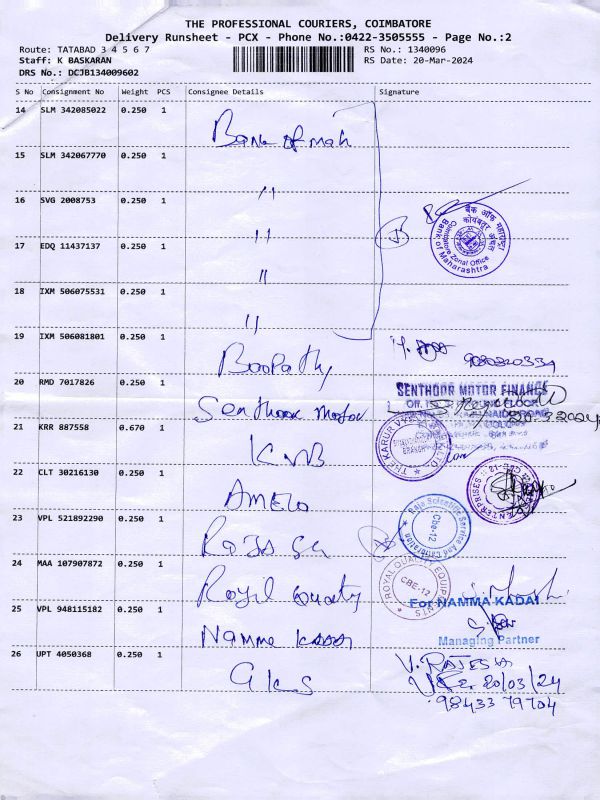 THE PROFESSIONAL COURIERS, COIMBATORE
Delivery Runsheet - PCX - Phone No.:0422-3505555 - Page No.:2
Route: TATABAD 3 4 5 6 7
RS No.: 1340096
Staff: K BASKARAN
RS Date: 20-Mar-2024
DRS No.: DCJB134009602
S No Consignment No Weight PCS Consignee Details Signature
14 SLM 342085022 0.250 1 Bank of mah
15 SLM 342067770 0.250 1 "
16 SVG 2008753 0.250 1 "
बैंक ऑफ महाराष्ट्र
कोयंबटूर अंचल
Coimbatore Zonal Office
Bank of Maharashtra
17 EDQ 11437137 0.250 1 "
18 IXM 506075531 0.250 1 "
19 IXM 506081801 0.250 1 Boopathy
20 RMD 7017826 0.250 1 Senthoor Motor
SENTHOOR MOTOR FINANCE
21 KRR 887558 0.670 1 KVB
THE KARUR VYSYA
22 CLT 30216130 0.250 1
ENTERPRISES
23 VPL 521892290 0.250 1
Raja Scientific Service And Calibration
Cbe-12
24 MAA 107907872 0.250 1 Royal Quality
ROYAL QUALITY EQUIPMENTS
CBE-12
25 VPL 948115182 0.250 1 Namma Kadai
For NAMMA KADAI
Managing Partner
26 UPT 4050368 0.250 1 GKS
V. RAJESH
20/03/24
98433 79704